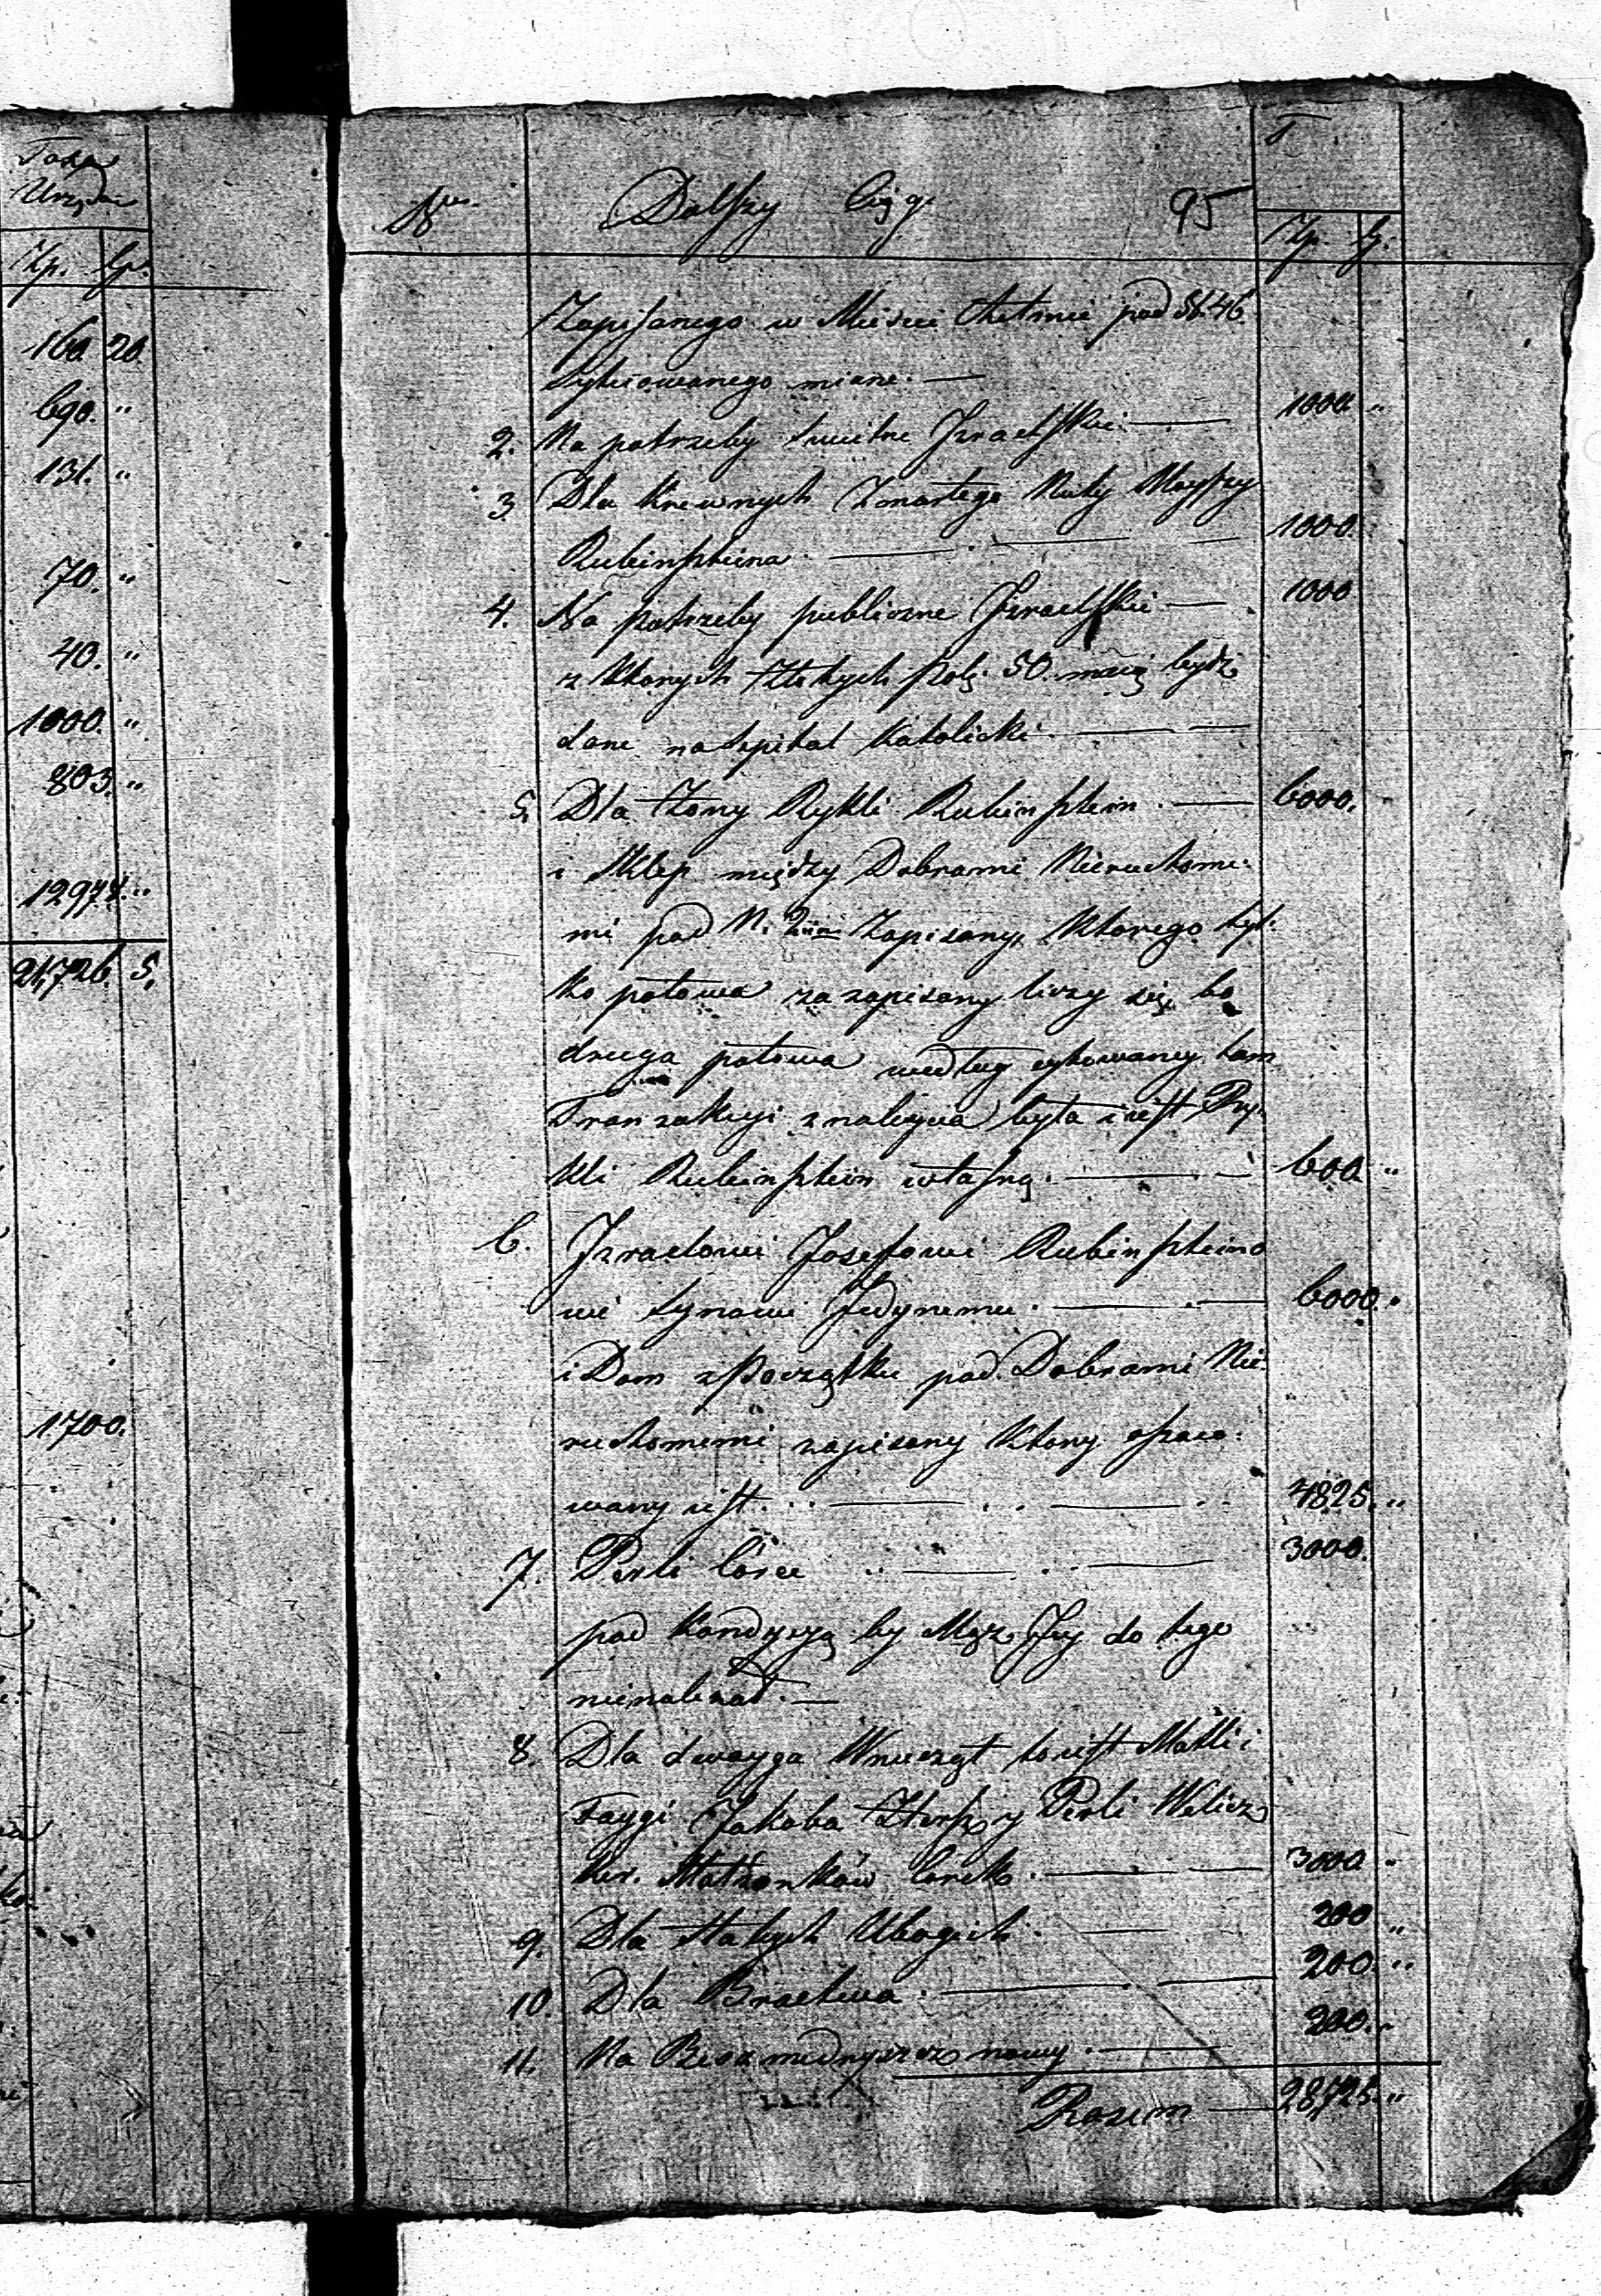 Taxa
Urzędu
Złp. Gr.
160 20.
690. "
131. "
70. "
40. "
1000. "
803. "
12974. "
21,726. 5.
1700.
Nrs. Dalszy Ciąg. 95
T
Złp. G.
Zapisanego w Mieście Chełmie pod N. 46.
sytuowanego miane. —
2. Na potrzeby Izraelskie. — 1000 "
3. Dla Krewnych Zmarłego Nuty Moyszy
Rubinszteina — 1000.
4. Na potrzeby publiczne Izraelskie — 1000
z których Złotych Pols. 50. maią bydź
dane na szpital Katolicki. —
5. Dla Żony Rykli Rubinsztein. — 6000.
i Sklep między Dobrami Nieruchome-
mi pod N. 2im Zapisany, którego tyl-
ko połowa za zapisany liczy się, bo
druga połowa według cytowaney tam
Tranzakcyi z należycia była i iest Ry-
kli Rubinsztein własną. — 600. "
6. Izraelowi Josefowi Rubinszteino
wi Synowi Jedynemu. — 6000. "
i Dom z Początku pod Dobrami Nie-
ruchomemi zapisany który oszaco-
wany iest. — 4825. "
7. Perli Córce — 3000.
pod kondycyą by Mąż Jey do tego
nienależał. —
8. Dla dwoyga Wnucząt to iest Matli i
Faygi Jakoba Perli Welicz
ker. Małżonków Corek. — 3000 "
9. Dla Stałych Ubogich. — 200 "
10. Dla Bractwa. — 200. "
11. Na nowy. — 200. "
Razem — 28,725. "